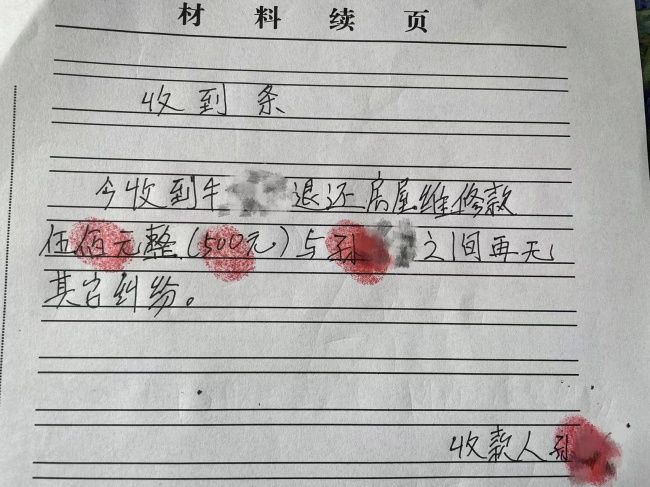 材料续页
收到条
今收到牛 退还房屋维修款
伍佰元整(500元)与孙 之间再无
其它纠纷。
收款人孙